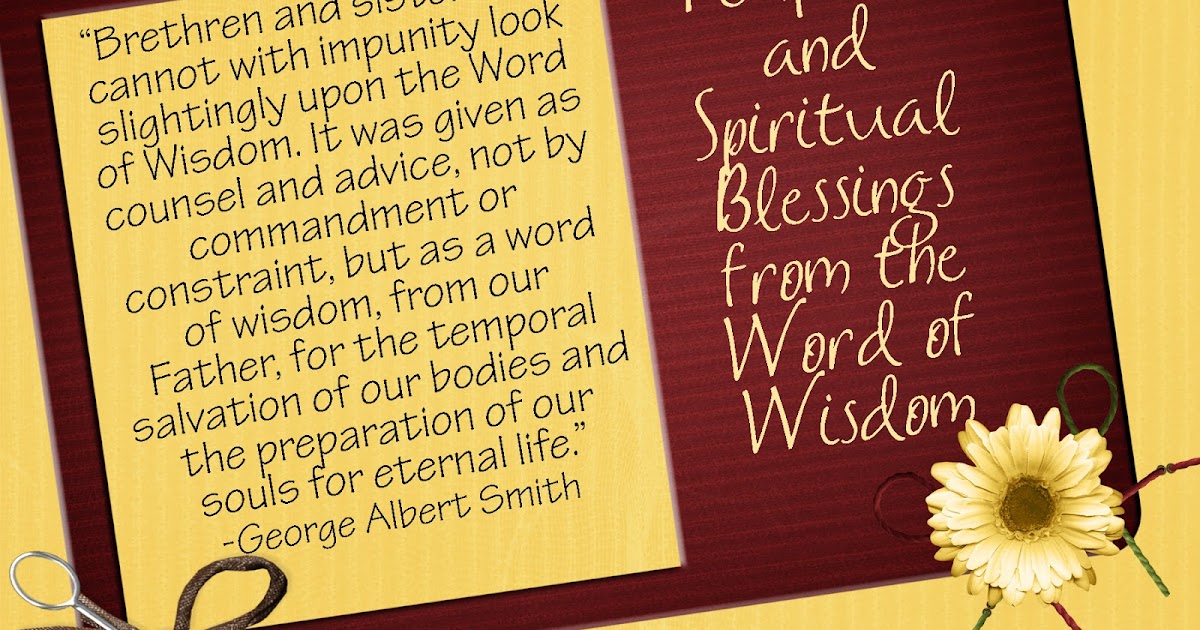 “Brethren and
cannot with impunity look
slightingly upon the Word
of Wisdom. It was given as
counsel and advice, not by
commandment or
constraint, but as a word
of wisdom, from our
Father, for the temporal
salvation of our bodies and
the preparation of our
souls for eternal life.”
-George Albert Smith
and
Spiritual
Blessings
from the
Word of
Wisdom